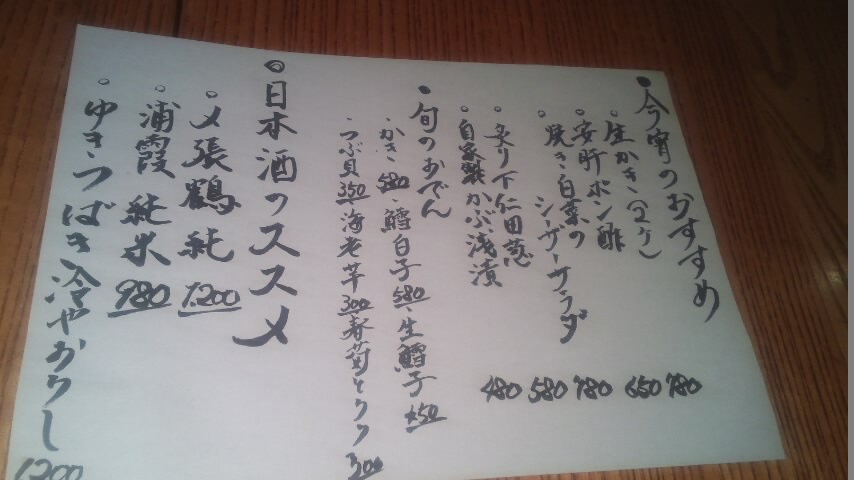 今宵のおすすめ
生かき(2ケ) 780
安肝ポン酢 650
焼き白菜のシーザーサラダ 780
炙り下仁田葱 580
自家製かぶ浅漬 480
旬のおでん
・かき 580 ・鱈白子 580 ・生鱈子 450
・つぶ貝 350 ・海老芋 300 ・春菊とクク 300
日本酒のススメ
〆張鶴 純 1,200
浦霞 純米 980
ゆきつばき 冷やおろし 1200